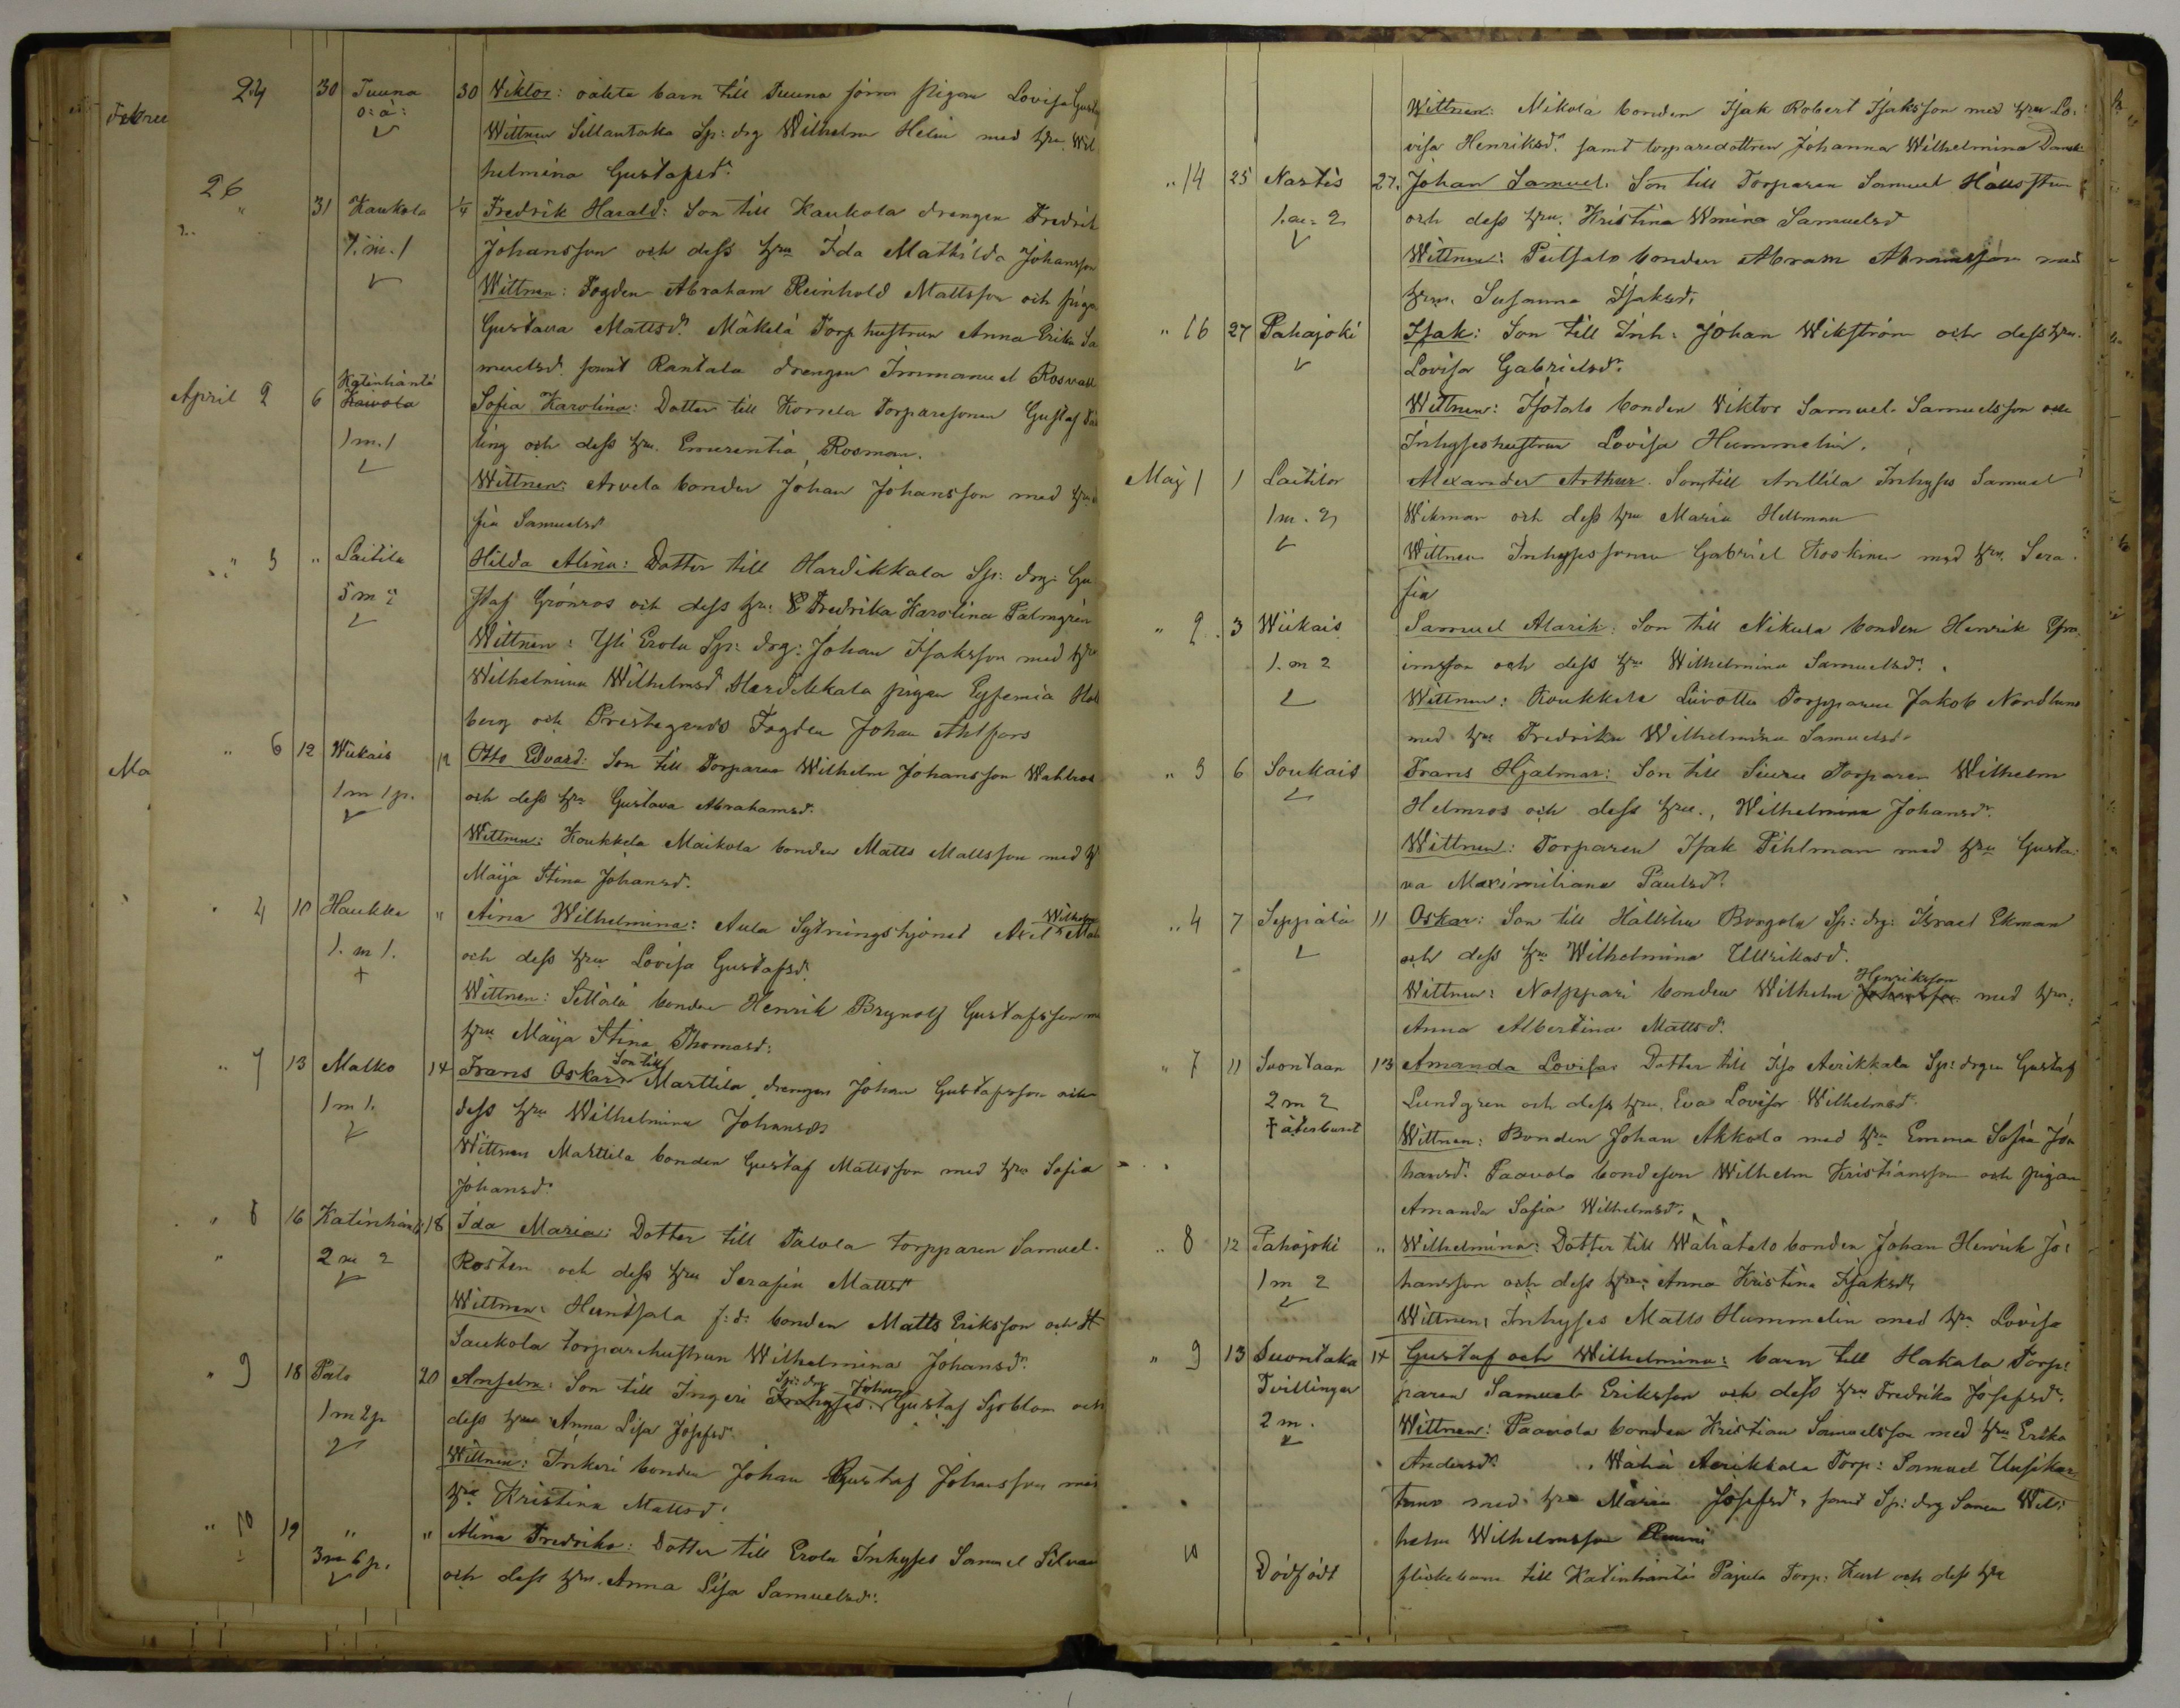 24 30 Tuuna 30 Viktor: oäkta barn till Tuuna pigan Lovisa
o: ä: Wittnen Sillantaka Sp: drg Wilhelm Helin med hru Wil
helmina Gustafsdr.
26 31 Kaukola 1/4 Fredrik Harald: Son till Kaukola drengen Fredrik
1. m. 1 Johansson och dess hru Ida Mathilda Johansson
Wittnen: Fogden Abraham Reinhold Mattsson och
Gustava Mattsdr. Mäkelä Torphustrun Anna Erika Sa
muelsd. samt Rantala drengen Immanuel Rosvall
Katinhäntä
April 2 6 Sofia Karolina: Dotter till Torparesonen Gustaf
1 m. 1 ling och dess hru. Emerentia Rosman.
Wittnen: Arvela bonden Johan Johansson med hru
fia Samuelsd
" 3 " Laitila Hilda Alina: Dotter till Hardikkala Sp: drg: Gu
5 m 2 staf Grönros och dess hru: Fredrika Karolina Palmgren
Wittnen: Yli Erola Sp: drg: Johan Isaksson med hru
Wilhelmina Wilhelmsd Hardikkala pigan Eyfemia
berg och Prestegårds Fogden Johan Ahlfors
" 6 12 Wiikais 12 Otto Edvard: Son till Torparen Wilhelm Johansson Wahlros
1 m 1 p. och dess hru Gustava Abrahamsdr.
Wittnen: Koukkela Maikola bonden Matts Mattsson med
Maija Stina Johansd.
Wilhelm
" 4 10 Haukka " Aina Wilhelmina: Aula Sytningshjonet
1. m 1. och dess hru Lovisa Gustafsd.
+ Wittnen: Sillälä bonden Henrik Brynolf Gustafsson
hru Maija Stina Thomasd:
Son till
" 7 13 Malko 14 Frans Oskar Marttila drengen Johan Gustafsson och
1 m 1. dess hru Wilhelmina Johansdr
Wittnen Marttila bonden Gustaf Mattsson med hru Sofia
Johansd.
" 8 16 Katinhäntä 18 Ida Maria: Dotter till Talola torpparen Samuel
" 2 m 2 Rosten och dess hru Serafia Mattsdr
Wittnen: Huntsala f: d: bonden Matts Eriksson och
Saukola torparehustrun Wilhelmina Johansdr.
Sp: drg Johan
" 9 18 Palo 20 Anselm: Son till Ingeri Gustaf Sjöblom och
1 m 2 p dess hru Anna Lisa Josefsd
Wittnen: Inkeri bonden Johan Gustaf Johansson med
hru Kristina Mattsd.
" 10 19 " " Alina Fredrika: Dotter till Erola Inhyses Samuel
3 m 6 p. och dess hru. Anna Lisa Samuelsdr.
Wittnen: Nikola bonden Isak Robert Isaksson med hru Lo:
visa Henriksd. samt torparedottren Johanna Wilhelmina
" 14 25 Nastis 27. Johan Samuel. Son till Torparen Samuel Hällström
och dess hru. Kristina Wmina Samuelsd
Wittnen: bonden Abram Abramsson med
hru. Susanna Isaksd.
" 16 27 Pahajoki Isak: Son till Inh: Johan Wikström och dess hru.
Lovisa Gabrielsd.
Wittnen: Isotalo bonden Viktor Samuel Samuelsson och
Inhyseshustrun Lovisa Hummelin.
Maj 1 1 Laitila Alexander Arthur. Son till Anttila Inhyses Samuel
1 m. 2 Wikman och dess hru Maria Hellman
Wittnen Inhysessonen Gabriel Koskinen med hru Sera
fia
" 2 3 Wiikais Samuel Alarik: Son till Nikula bonden Henrik
1. m 2 imsson och dess hru Wilhelmina Samuelsd.
Wittnen: Koukkela Torpparen Jakob Nordlund
med hru Fredrika Wilhelmina Samuelsd.
" 3 6 Soukais Frans Hjalmar: Son till Torparen Wilhelm
Helmros och dess hru., Wilhelmina Johansd.
Wittnen: Torparen Isak Pihlman med hru Gusta:
va Maximiliana Paulsd.
" 4 7 Seppälä 11 Oskar: Son till Borgola Sp: drg: Israel Ekman
och dess hru Wilhelmina Ullrikasd.
Henriksson
Wittnen: Notppari bonden Wilhelm Johansson med hru:
Anna Albertina Mattsd.
" 7 11 Suontaan 13 Amanda Lovisa: Dotter till Iso Aerikkala Sp: drgn Gustaf
2 m 2 Lundgren och dess hru. Eva Lovisa Wilhelmsd.
Wittnen: Bonden Johan Akkola med hru Emma Sofia Jo
hansd. Paavola bondeson Wilhelm Kristiansson och pigan
Amanda Sofia Wilhelmsdr.
" 8 12 Pahajoki " Wilhelmina: Dotter till Wähätalo bonden Johan Henrik Jo:
1 m 2 hansson och dess hru: Anna Kristina Isaksdr
Wittnen: Inhyses Matts Hummelin med hru Lovisa
" 9 13 Suontaka 14 Gustaf och Wilhelmina: barn till Hakala Torp:
Tvillingar paren Samuel Eriksson och dess hru Fredrika Josefsd.
2 m. Wittnen: Paavola bonden Kristian Samuelsson med hru Erika
Andersd. Wähä Aerikkala Torp: Samuel
med hru Maria Josefsd, samt Sp: drg Wil:
helm Wilhelmsson
10 Dödfödt flickebarn till Katinhäntä Pajula Torp: och dess hru